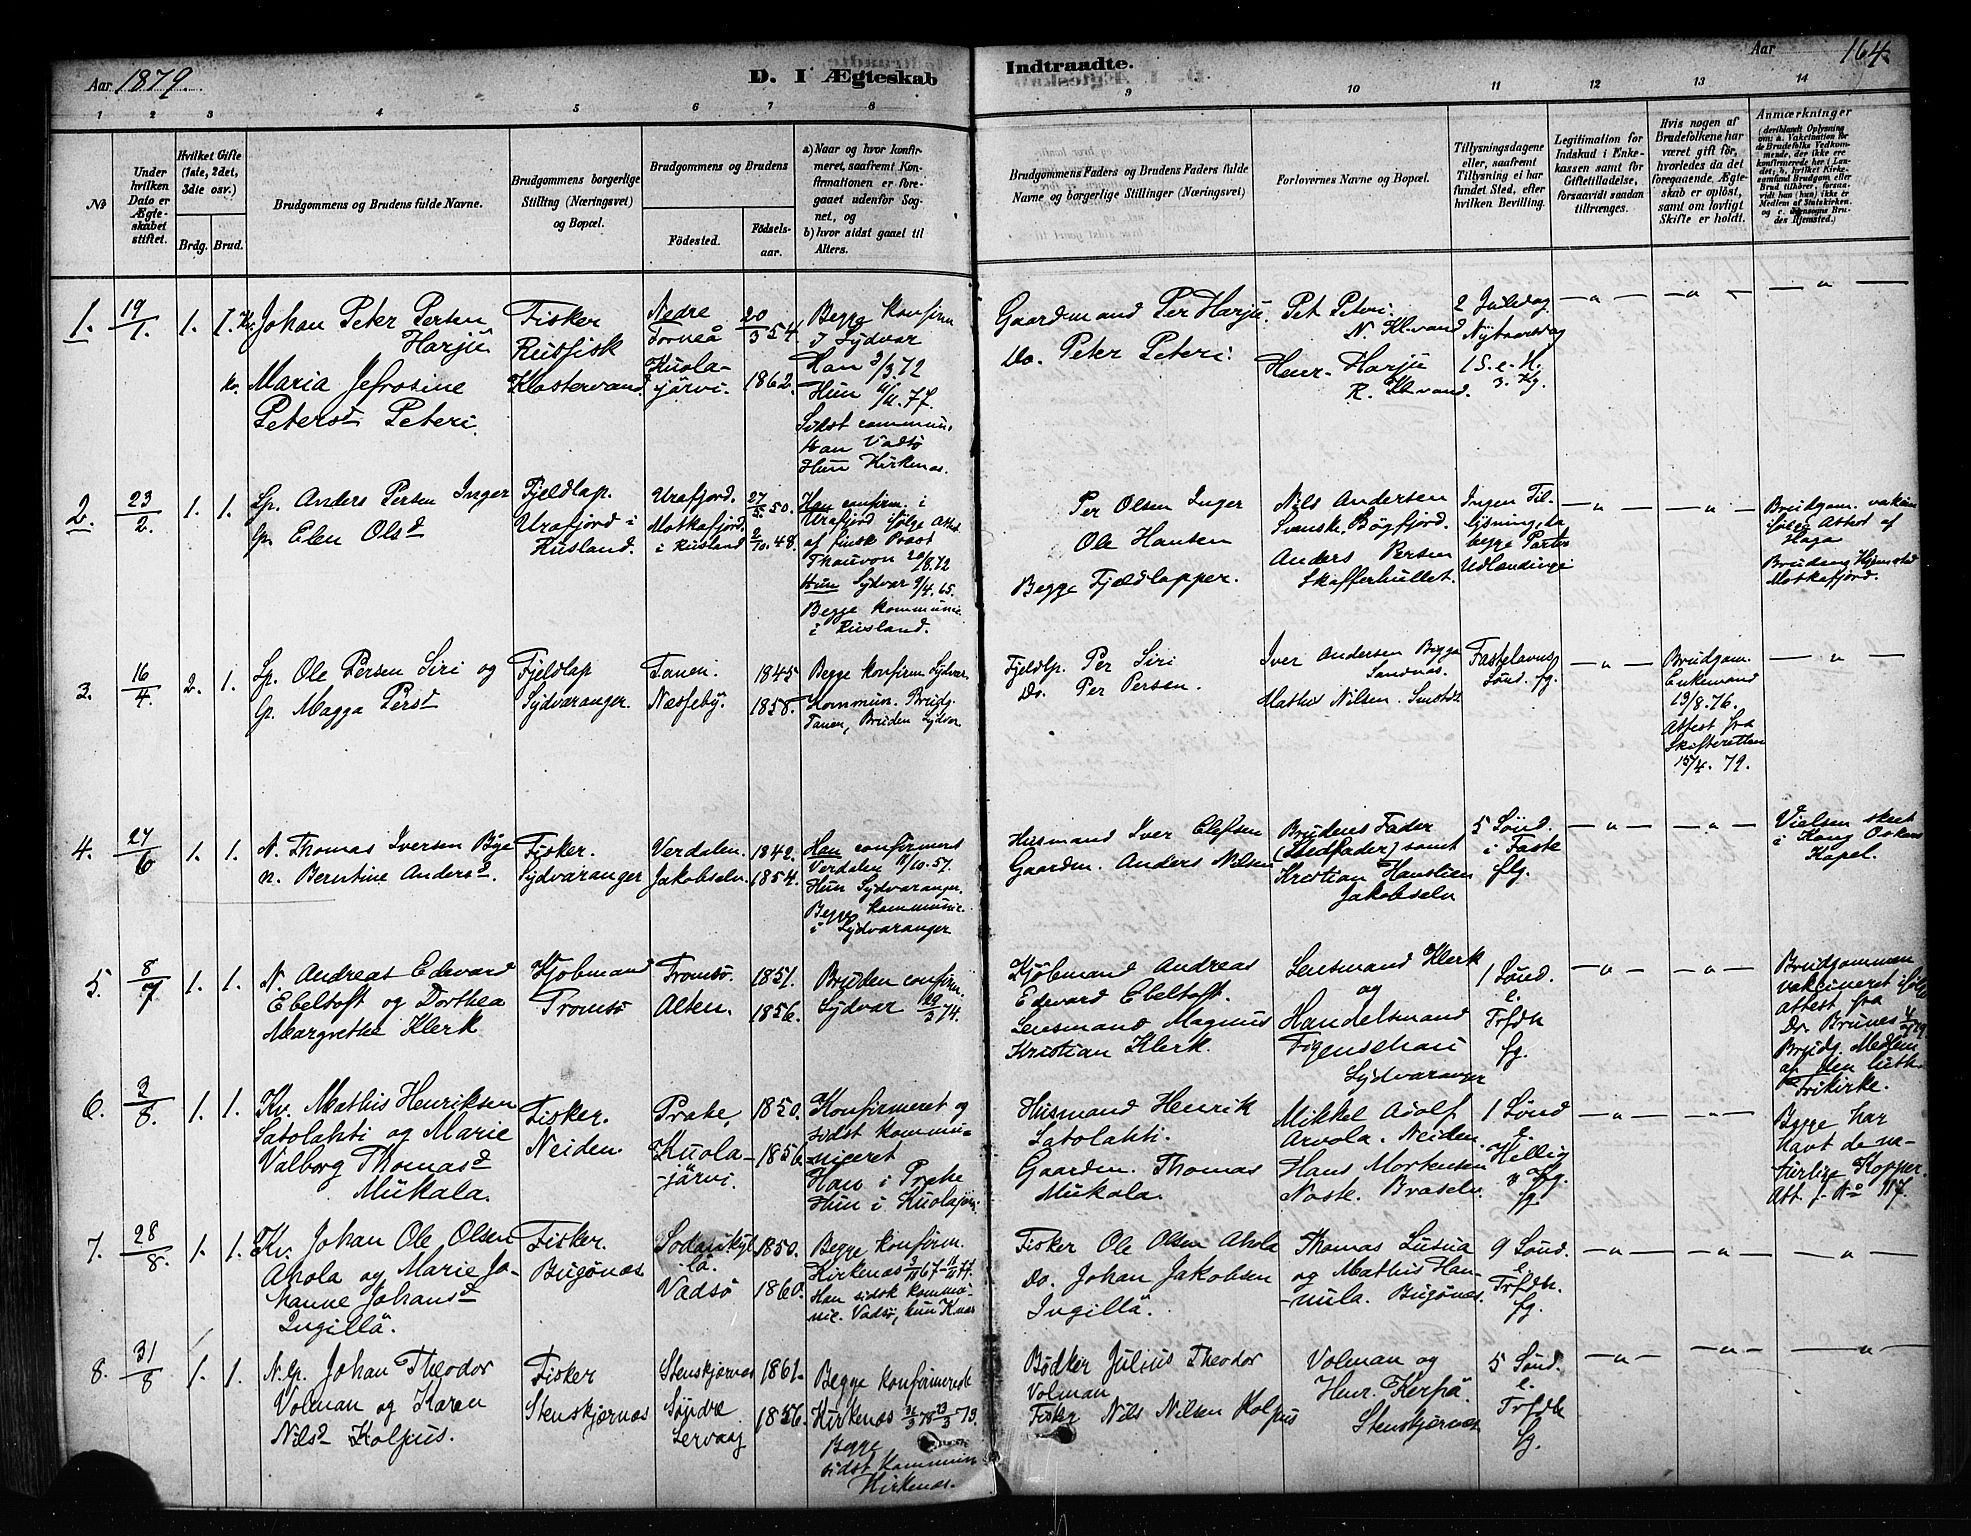 Aar 1879.
D. I Ægteskab
Indtraadte.
Aar
164.
1 2 3 4 5 6 7 8 9 10 11 12 13 14
No
Under hvilken Dato er Ægteskabet stiftet.
Hvilket Gifte (1ste, 2det, 3die osv.)
Brdg. Brud.
Brudgommens og Brudens fulde Navne.
Brudgommens borgerlige Stilling (Næringsvei) og Bopæl.
Brudgommens og Brudens
Födested.
Födselsaar.
a) Naar og hvor konfirmeret, saafremt Konfirmationen er foregaaet udenfor Sognet, og
b) hvor sidst gaaet til Alters.
Brudgommens Faders og Brudens Faders fulde Navne og borgerlige Stillinger (Næringsvei)
Forlovernes Navne og Bopæl.
Tillysningsdagene eller, saafremt Tillysning ei har fundet Sted, efter hvilken Bevilling.
Legitimation for Indskud i Enkekassen samt for Giftetilladelse, forsaavidt saadan tiltrænges.
Hvis nogen af Brudefolkene har været gift för, hvorledes da det foregaaende Ægteskab er oplöst, samt om lovligt Skifte er holdt.
Anmærkninger
1. 19/1. 1. 1.
Johan Peter Persen
Harju
Maria Jefrosine
Petersd Peteri.
Fisker
Rusfisk
Klostervand
Nedre
Torneå
Kuola-
järvi.
20/3 54.
1862.
Begge konfirm
i Sydvar
Han 3/3.72
Hun 11/11.77.
Sidst commun.
Han Vadsö
Hun Kirkenæs.
Gaardmand Per Harju.
Do. Peter Peteri.
Pet Peteri.
N. Kl.vand
Henr. Harju
R. Kl.vand.
2 Juledag
Nytaarsdag
1 S. e. H.
3. Kg.
2. 23/2. 1. 1.
Lp. Anders Persen Inger
Lp. Elen Olsd
Fjeldlap.
Urafjord i
Rusland.
Urafjord.
Motkafjord
i Rusland
27/5 50.
2/10.48.
Han confirm. i
Urafjord ifölge Attest
af finsk Præst
Thauvon 20/8.72
Hun Sydvar 9/4.65.
Begge kommunic.
i Rusland.
Per Olsen Inger
Ole Hansen
Begge Fjeldlapper.
Nils Andersen
Svanske. Bögfjord.
Anders Persen
Skafferhullet.
Ingen Til-
lysning, da
begge Parter
Udlændinge
Brudgom. vakcin
ifölge Attest af
Haga
Brudens Hjemsted
Motkafjord.
3. 16/4. 2. 1.
Lp. Ole Persen Siri og
Lp. Magga Persd
Fjeldlap
Sydvaranger.
Tanen.
Næsseby.
1845
1858.
Begge konfirm Sydvar.
Kommun. Brudg.
Tanen, Bruden Sydvar
Fjeldlp. Per Siri
Do. Per Persen.
Iver Andersen Bigga
Sandnæs.
Mathis Nilsen
Fastelavns
Sönd. fg.
Brudgom.
Enkemand
23/8.76.
Attest fra
Skifteretten
15/4. 79.
4. 27/6 1. 1.
N. Thomas Iversen Bye
N. Berntine Andersd.
Fisker.
Sydvaranger
Verdalen.
Jakobselv.
1842.
1854.
Han confirmeret
Verdalen 11/10.57.
Hun Sydvaranger.
Begge kommunic.
i Sydvaranger
Husmand Iver Olefsen
Gaardm. Anders Nilsen
Brudens Fader
(Stedfader) samt
Kristian Hanstien
Jakobselv
5 Sönd.
i Faste
flg.
Vielsen skeet
i Kong Oskars
Kapel.
5. 8/7 1. 1.
N. Andreas Edevard
Ebeltoft og Dorthea
Margrethe Klerk
Kjöbmand
Tromsö
Tromsö.
Alten.
1851.
1856.
Bruden confirm.
Sydvar 29/3 74.
Kjöbmand Andreas
Edevard Ebeltoft.
Lensmand Magnus
Kristian Klerk.
Lensmand Klerk
og
Handelsmand
Figenschau
Sydvaranger
1 Sönd.
e.
Trfdh
fg.
Brudgommen
vakcineret ifölge
attest fra
Dr. Brunes
Brudg. Medlem
af den luth.
Frikirke.
6. 3/8. 1. 1.
Kv. Mathis Henriksen
Satolahti og Marie
Valborg Thomasd
Mukala.
Fisker.
Neiden
Prake,
Kuola-
-järvi.
1850.
1856
Konfirmeret og
sidst kommu-
niceret
Han i Prake
Hun i Kuolajärvi
Husmand Henrik
Satolahti.
Gaardm. Thomas
Mukala.
Mikkel Adolf
Arvola. Neiden.
Hans Mortensen
Noste. Braselv.
1 Sönd
e.
Hellig
3 Kg.
fg.
Begge har
havt de na-
turlige Kopper.
Att. J. No 117.
7. 28/8. 1. 1.
Kv. Johan Ole Olsen
Ahola og Marie Jo-
hanne Johansd
Ingillä.
Fisker.
Bugönæs
Sodankyl-
la.
Vadsö
1850.
1860.
Begge konfirm.
Kirkenæs
Han sidst kommu-
nic. Vadsö, hun Knæs
Fisker Ole Olsen Ahola
Do. Johan Jakobsen
Ingillä.
Thomas Lusua
og Mathis Han-
-nula. Bugönæs.
9 Sönd.
e.
Trfdh.
fg.
8. 31/8 1. 1.
N. Lp. Johan Theodor
Volman og Karen
Nilsd Kolpus.
Fisker
Stenskjernæs
Stenskjernæs
Söndre
Servaag
1861.
1856.
Begge konfirmerede
Kirkenæs 31/3 78 23/3 73.
Begge
sidst kommun
Kirkenæs.
Bödker Julius Theodor
Volman
Fisker Nils Nilsen Kolpus
Volman og
Henr. Kerpä
Stenskjernæs
5 Sönd.
e.
Trfdh
fg.